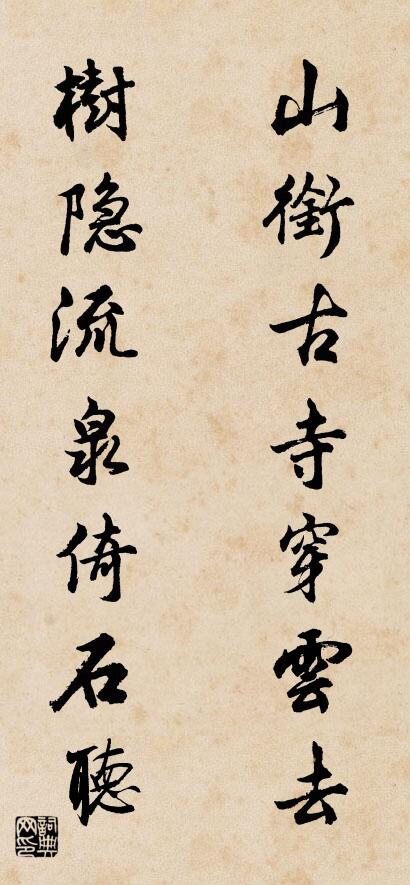 山銜古寺穿雲去
樹隐流泉倚石聽
詞典网印